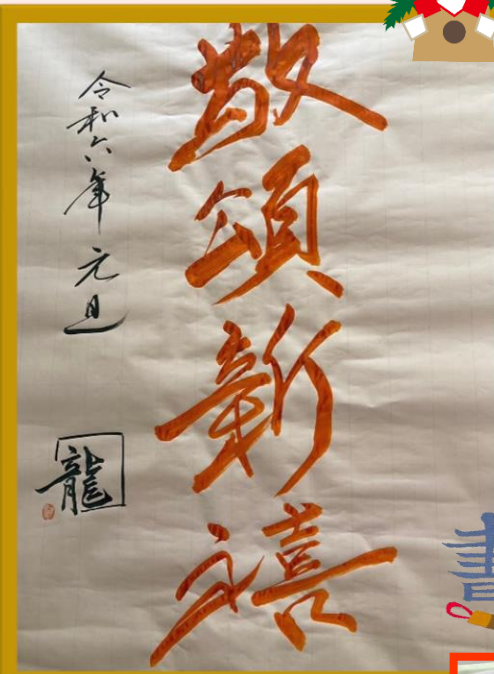 敬頌新禧
令和六年元旦
龍